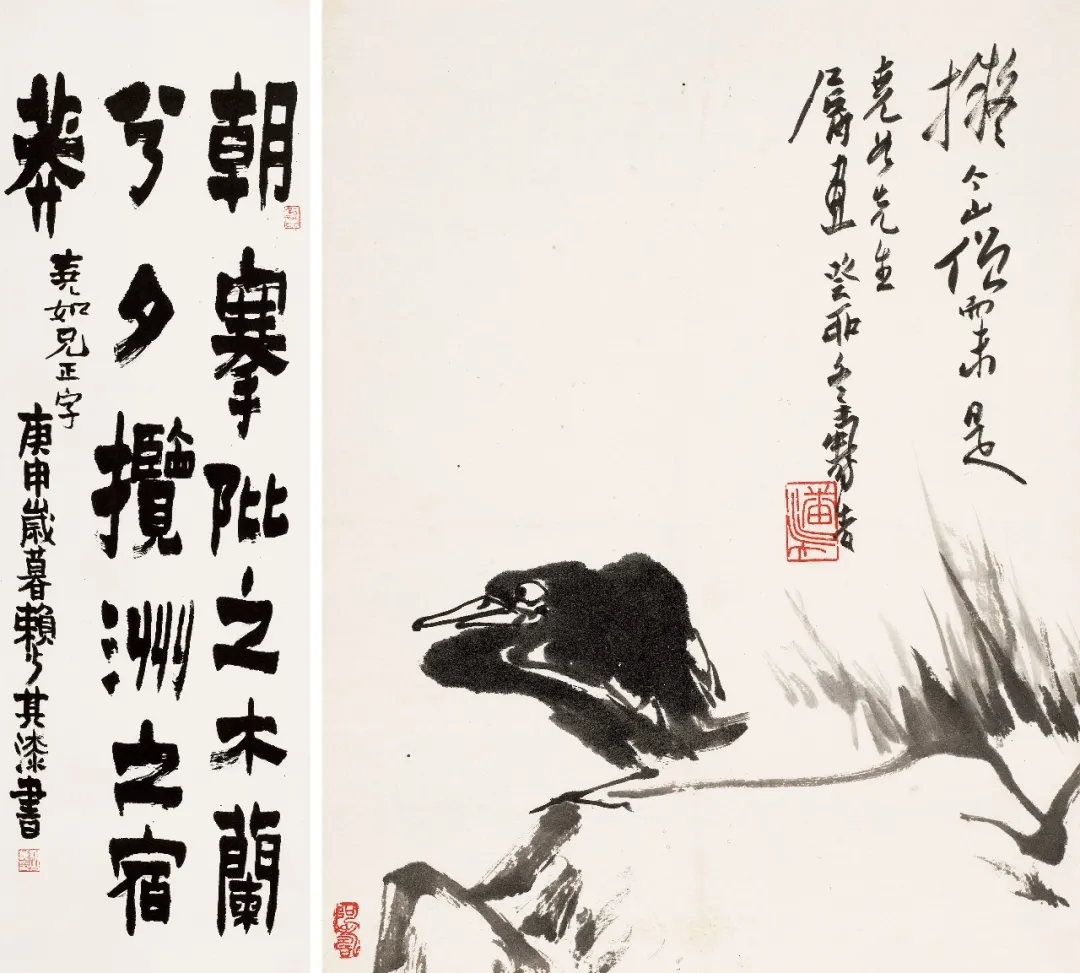 朝搴阰之木蘭
兮夕攬洲之宿
莽
堯如兄正字
庚申歲暮賴少其漆書
擬个山僧而未是
堯如先生
屬畫 癸卯冬 壽者
阿壽